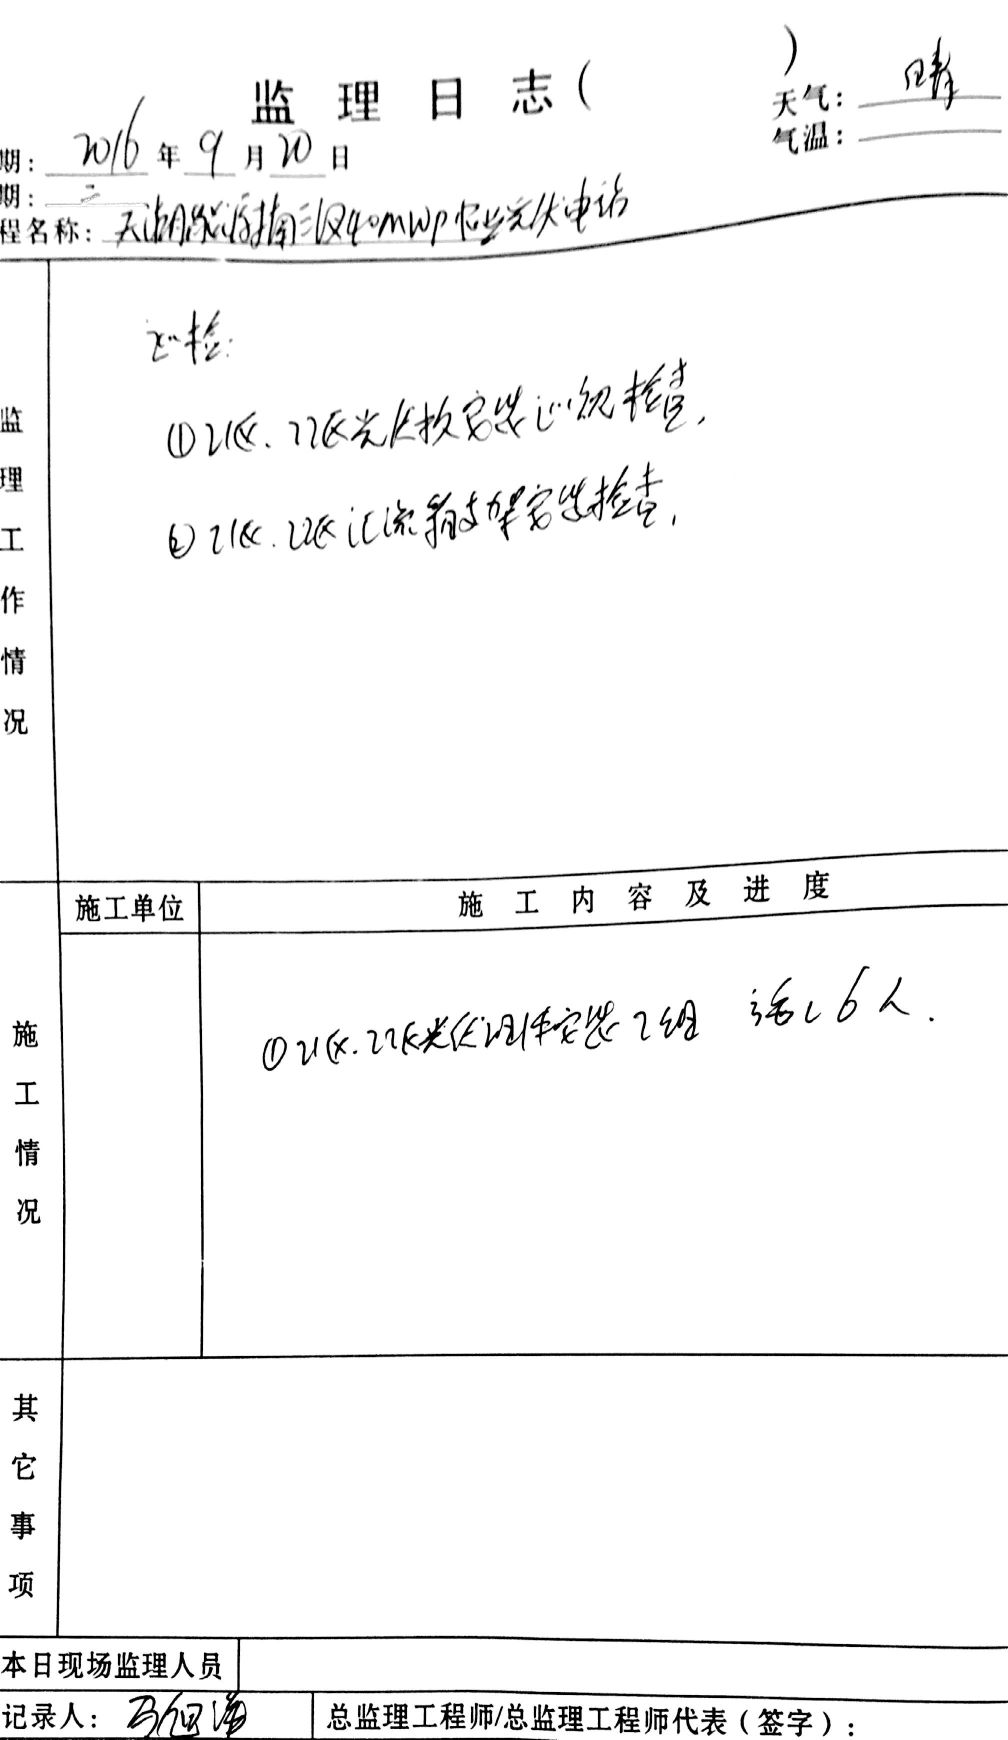 监理日志（ ）
天气：晴
气温：
期：2016年9月20日
期：二
程名称：天湖 40MWP 光伏电站
监理工作情况
巡检：
①21区、22区光伏板安装巡视检查，
②21区、22区汇流箱支架安装检查，
施工单位
施工内容及进度
施工情况
①21区、22区光伏组件安装2组 6人．
其它事项
本日现场监理人员
记录人：
总监理工程师/总监理工程师代表（签字）：